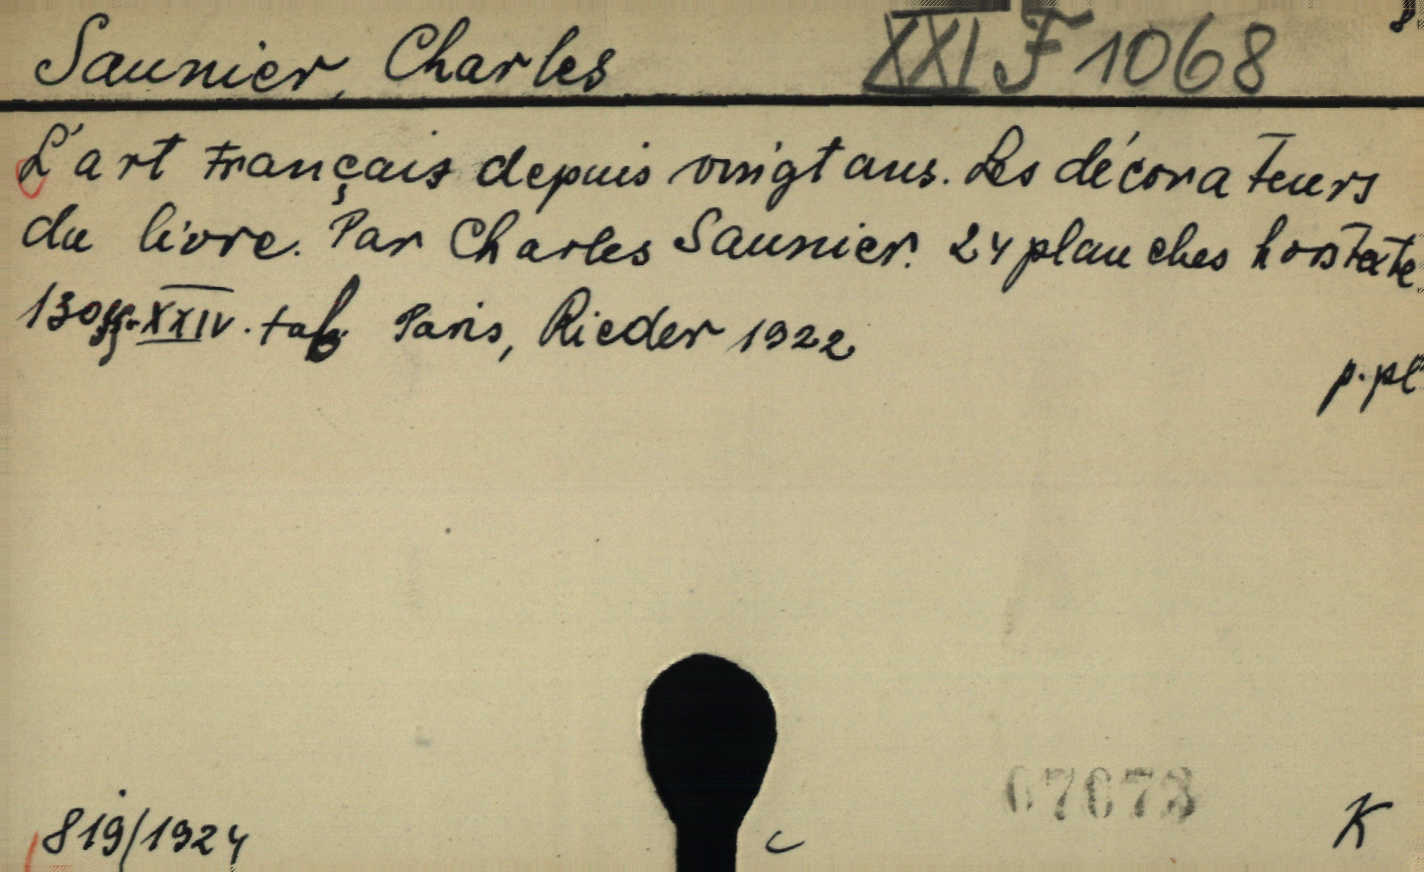 Saunier, Charles XXI F 1068 8
L'art français depuis vingt ans. Les décorateurs
du livre. Par Charles Saunier. 24 planches hors texte.
130 XXIV. tab. Paris, Rieder 1922
p. pl
67673
819/1924 c K